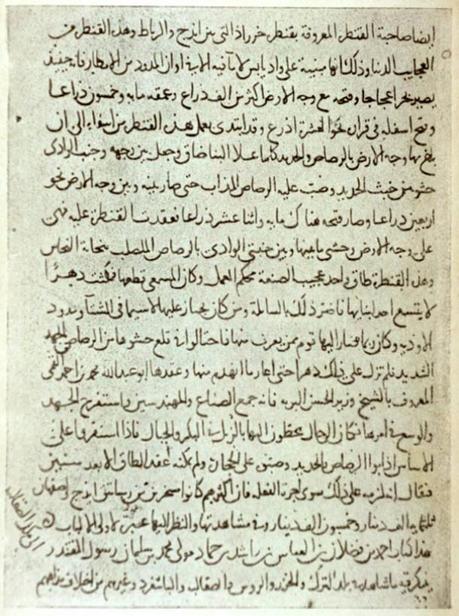 ايضا صاحبة القنطرة المعروفة بقنطرة خرزاد التي بين ايذج والرباط وهذه القنطرة من
عجايب الدنيا وذلك انها مبنية على واد يابس لا ماء فيه الا في اوان المدود من الامطار فانه حينئذ
يصير بحرا عجاجا وفتحه مع وجه الارض اكثر من الف ذراع وعمقه مايه وخمسون ذراعا
وفتح اسفله في قراره نحو العشرة اذرع وقد ابتدى بعمل هذه القنطرة من اسفلها الى ان
بلغ بها وجه الارض بالرصاص والحديد كلما علا البنا ضاق وجعل بين وجهه وجنب الوادي
حشو من خبث الحديد وصب عليه الرصاص المذاب حتى صار بينه وبين وجه الارض نحو
اربعين ذراعا وصار فتحه هناك مايه واثنا عشر ذراعا فعقدت القنطرة عليه فهي
على وجه الارض وحشي ما بينها وبين جنبتي الوادي بالرصاص المصلب بنحاتة النحاس
وهذه القنطرة طاق واحد عجيب الصنعة محكم العمل وكان المسمعي قطعها فمكثت دهرا
لا يتسع احد لبنايها فاضر ذلك بالسابلة ومن كان يجتاز عليها لا سيما في الشتا ومدود
الاوديه وكان ربما صار اليها قوم ممن يعرف منها فاحتالوا في قلع حشوها من الرصاص بالجهد
الشديد فلم تزل على ذلك دهرا حتى اعاد ما انهدم منها وعقدها ابو عبدالله محمد بن احمد القمي
المعروف بالشيخ وزير الحسن البويه فانه جمع الصناع والمهندسين واستفرغ الجهد
والوسع في امرها فكان الرجال يحطون اليها بالزبل في البكر والحبال فاذا استقروا على
الاساس اذابوا الرصاص والحديد وصبوه على الحجاره ولم يمكنه عقد الطاق الا بعد سنين
فيقال انه لزمه على ذلك سوى اجرة الفعلة فان اكثرهم كانوا مسخرين من رساتيق ايذج واصفهان
ثلثمايه الف دينار وخمسون الف دينار وفي مشاهدتها والنظر اليها عبرة لاولي الالباب
هذا كتاب احمد بن فضلان بن العباس بن راشد بن حماد مولى محمد بن سليمان رسول المقتدر
يذكر فيه ما شاهد في بلد الترك والخزر والروس والصقالبه والباشغرد وغيرهم من اختلاف مذاهبهم